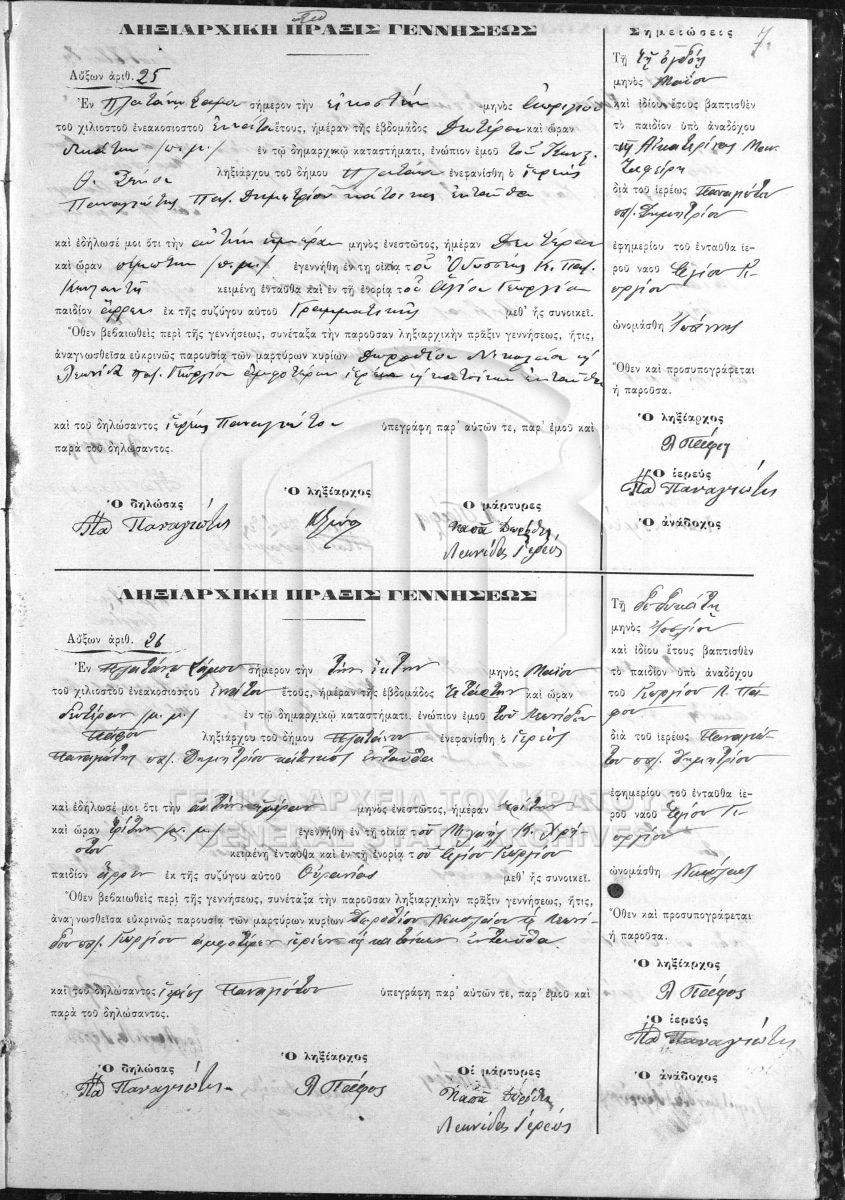 7.
ΛΗΞΙΑΡΧΙΚΗ ΠΡΑΞΙΣ ΓΕΝΝΗΣΕΩΣ
Αὔξων ἀριθ. 25
Ἐν Πλατάνῳ Σάμου σήμερον τὴν εἰκοστὴν μηνὸς Ἀπριλίου
τοῦ χιλιοστοῦ ἐνεακοσιοστοῦ ἐνάτου ἔτους, ἡμέραν τῆς ἑβδομάδος Δευτέραν καὶ ὥραν
δεκάτην /π.μ./ ἐν τῷ δημαρχικῷ καταστήματι, ἐνώπιον ἐμοῦ τοῦ
ληξιάρχου τοῦ δήμου Πλατάνου ἐνεφανίσθη ὁ ἱερεὺς
Παναγιώτης Παπ. Δημητρίου κάτοικος ἐνταῦθα
καὶ ἐδήλωσέ μοι ὅτι τὴν αὐτὴν ἡμέραν μηνὸς ἐνεστῶτος, ἡμέραν Δευτέραν
καὶ ὥραν πέμπτην /π.μ./ ἐγεννήθη ἐν τῃ οἰκίᾳ τοῦ Ὀδυσσέως Κ. Παπ.
κειμένῃ ἐνταῦθα καὶ ἐν τῇ ἐνορίᾳ τοῦ Ἁγίου Γεωργίου
παιδίον ἄρρεν ἐκ τῆς συζύγου αὐτοῦ Γραμματικῆς μεθ' ἧς συνοικεῖ.
Ὅθεν βεβαιωθεὶς περὶ τῆς γεννήσεως, συνέταξα τὴν παροῦσαν ληξιαρχικὴν πρᾶξιν γεννήσεως, ἥτις,
ἀναγνωσθεῖσα εὐκρινῶς παρουσίᾳ τῶν μαρτύρων κυρίων Δωροθέου Νικολάου κὴ
Λεωνίδα παπ. Γεωργίου ἀμφοτέρων ἱερέων κὴ κατοίκων ἐνταῦθα
καὶ τοῦ δηλώσαντος ἱερέως Παναγιώτου ὑπεγράφη παρ' αὐτῶν τε, παρ' ἐμοῦ καὶ
παρὰ τοῦ δηλώσαντος.
Ὁ δηλώσας Ὁ ληξίαρχος Οἱ μάρτυρες
Πα Παναγιώτης
Παπᾶ
Λεωνίδας Ἱερεύς
Σημειώσεις
Τῇ τῇ ὀγδόῃ
μηνὸς Μαΐου
καὶ ἰδίου ἔτους βαπτισθὲν
τὸ παιδίον ὑπὸ ἀναδόχου
τῆς Αἰκατερίνας
διὰ τοῦ ἱερέως Παναγιώτου
παπ. Δημητρίου
ἐφημερίου τοῦ ἐνταῦθα ἱε-
ροῦ ναοῦ Ἁγίου Γε-
ωργίου
ὠνομάσθη Ἰωάννης
Ὅθεν καὶ προσυπογράφεται
ἡ παροῦσα.
Ὁ ληξίαρχος
Ὁ ἱερεὺς
Πα Παναγιώτης
Ὁ ἀνάδοχος
ΛΗΞΙΑΡΧΙΚΗ ΠΡΑΞΙΣ ΓΕΝΝΗΣΕΩΣ
Αὔξων ἀριθ. 26
Ἐν Πλατάνῳ Σάμου σήμερον τὴν τὴν ἕκτην μηνὸς Μαΐου
τοῦ χιλιοστοῦ ἐνεακοσιοστοῦ ἐνάτου ἔτους, ἡμέραν τῆς ἑβδομάδος Τετάρτην καὶ ὥραν
δευτέραν /μ.μ./ ἐν τῷ δημαρχικῷ καταστήματι. ἐνώπιον ἐμοῦ τοῦ Λεωνίδου
ληξιάρχου τοῦ δήμου Πλατάνου ἐνεφανίσθη ὁ ἱερεὺς
Παναγιώτης παπ. Δημητρίου κάτοικος ἐνταῦθα
καὶ ἐδήλωσέ μοι ὅτι τὴν αὐτὴν ἡμέραν μηνὸς ἐνεστῶτος, ἡμέραν
καὶ ὥραν τρίτην /π.μ./ ἐγεννήθη ἐν τῇ οἰκίᾳ τοῦ Μιχαὴλ Κ. Χρή-
στου κειμένῃ ἐνταῦθα καὶ ἐν τῇ ἐνορίᾳ τοῦ Ἁγίου Γεωργίου
παιδίον ἄρρεν ἐκ τῆς συζύγου αὐτοῦ Οὐρανίας μεθ' ἧς συνοικεῖ.
Ὅθεν βεβαιωθεὶς περὶ τῆς γεννήσεως, συνέταξα τὴν παροῦσαν ληξιαρχικὴν πρᾶξιν γεννήσεως, ἥτις,
ἀναγνωσθεῖσα εὐκρινῶς παρουσίᾳ τῶν μαρτύρων κυρίων Δωροθέου Νικολάου κὴ Λεωνί-
δου παπ. Γεωργίου ἀμφοτέρων ἱερέων κὴ κατοίκων ἐνταῦθα.
καὶ τοῦ δηλώσαντος ἱερέως Παναγιώτου ὑπεγράφη παρ' αὐτῶν τε, παρ' ἐμοῦ καὶ
παρὰ τοῦ δηλώσαντος.
Ὁ δηλώσας Ὁ ληξίαρχος Οἱ μάρτυρες
Πα Παναγιώτης
Παπᾶ
Λεωνίδας Ἱερεύς
Τῇ δωδεκάτῃ
μηνὸς Ἰουλίου
καὶ ἰδίου ἔτους βαπτισθὲν
τὸ παιδίον ὑπὸ ἀναδόχου
τοῦ Γεωργίου
διὰ τοῦ ἱερέως Παναγιώ-
του παπ. Δημητρίου
ἐφημερίου τοῦ ἐνταῦθα ἱε-
ροῦ ναοῦ Ἁγίου Γε-
ωργίου
ὠνομάσθη Νικόλαος
Ὅθεν καὶ προσυπογράφεται
ἡ παροῦσα.
Ὁ ληξίαρχος
Ὁ ἱερεὺς
Πα Παναγιώτης
Ὁ ἀνάδοχος
ΓΕΝΙΚΑ ΑΡΧΕΙΑ ΤΟΥ ΚΡΑΤΟΥΣ
GENERAL STATE ARCHIVES